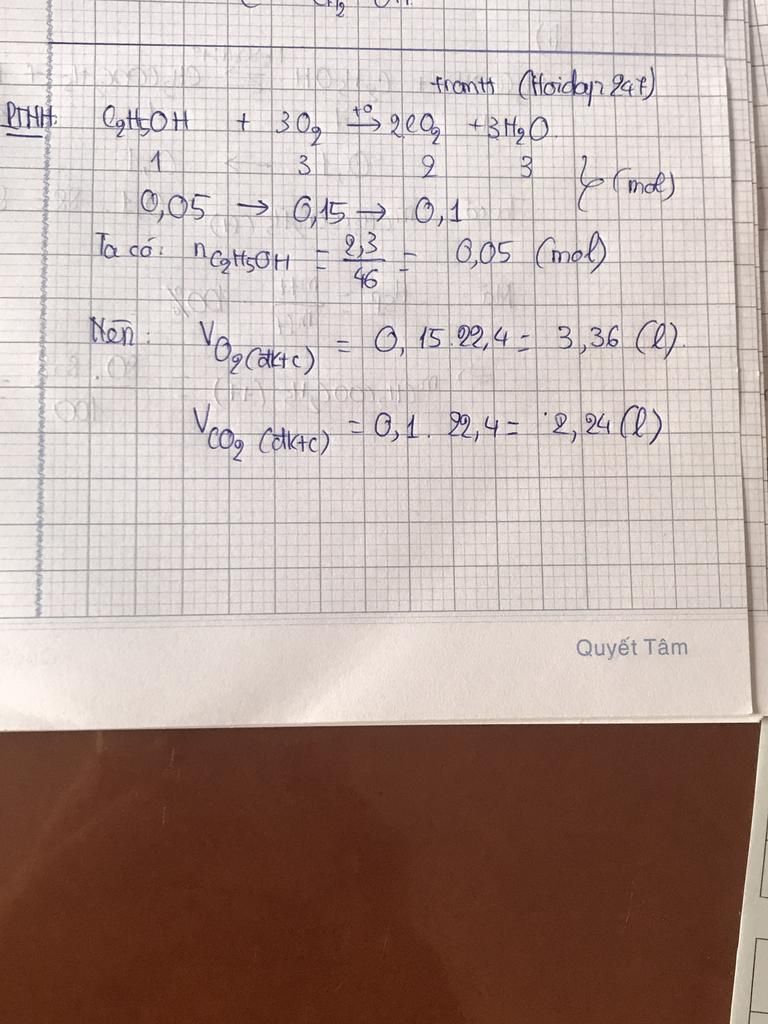 framtt (Hoidap247)
PTHH: C₂H₅OH + 3O₂ t°→ 2CO₂ + 3H₂O.
1 3 2 3 (mol)
0,05 → 0,15 → 0,1
Ta có: nC₂H₅OH = 2,3/46 = 0,05 (mol)
Nên: VO₂(đktc) = 0,15.22,4 = 3,36 (l).
VCO₂ (đktc) = 0,1. 22,4 = 2,24 (l)
Quyết Tâm